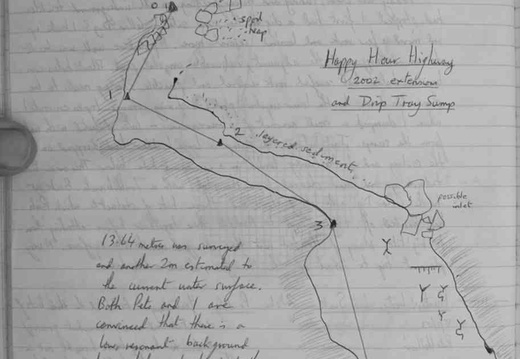 0
Happy Hour Highway
2002 extensions
and Drip Tray Sump
1
2
layered sediment
possible
inlet
3
13.64 metres was surveyed
and another 2m estimated to
the current water surface.
Both Pete and I are
convinced that there is a
low resonant background